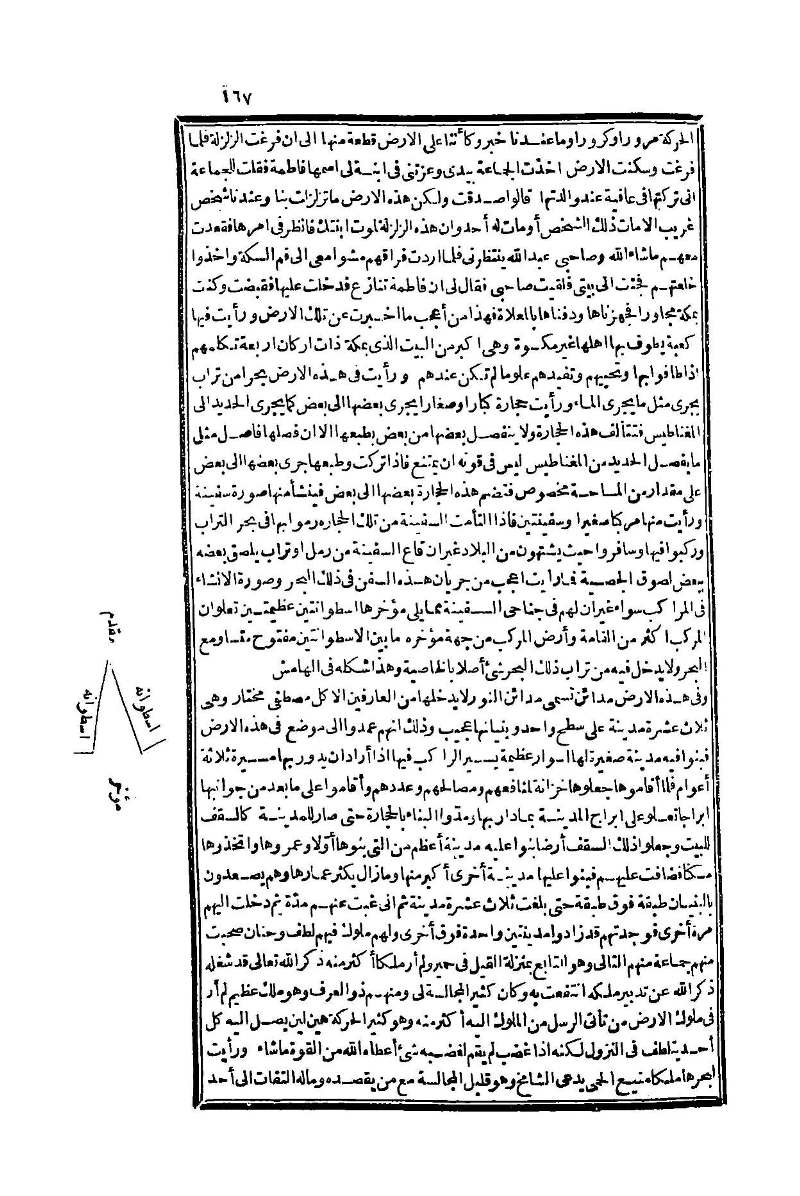 ١٦٧
الحركة مرورا وكرورا وما عندنا خبر وكأننا على الارض قطعة منها الى ان فرغت الزلزلة فلما
فرغت وسكنت الارض اخذت الجماعة بيدى وعزتنى فى ابنة لى اسمها فاطمة فقلت للجماعة
انى تركتها فى عافية عند والدتها قالوا صدقت ولكن هذه الارض ما تزلزلت بنا وعندنا شخص
غريب الا مات ذلك الشخص أو مات له أحد وان هذه الزلزلة لموت ابنتك فانظر فى امرها فقعدت
معهم ماشاء الله وصاحبى عبد الله ينتظرنى فلما اردت فراقهم مشوا معى الى فم السكة واخذوا
خلعتهم فجئت الى بيتى فلقيت صاحبى فقال لى ان فاطمة تنازع فدخلت عليها فقبضت وكنت
بمكة مجاورا فجهزناها ودفناها بالمعلاة فهذا من أعجب ما اخبرت عن تلك الارض ورأيت فيها
كعبة يطوف بها اهلها غير مكسوة وهى اكبر من البيت الذى بمكة ذات اركان اربعة تكلمهم
اذا طافوا بها وتحييهم وتفيدهم علوما لم تكن عندهم ورأيت فى هذه الارض بحرا من تراب
يجرى مثل ما يجرى الماء ورأيت حجارة كبارا وصغارا يجرى بعضها الى بعض كما يجرى الحديد الى
المغناطيس فتتألف هذه الحجارة ولا ينفصل بعضها من بعض بطبعها الا ان فصلها فاصل مثلى
ما يفصل الحديد من المغناطيس ليس فى قوته ان يمتنع فاذا ترك وطبعها جرى بعضها الى بعض
على مقدار من المساحة مخصوص فتضم هذه الحجارة بعضها الى بعض فينشأ منها صورة سفينة
ورأيت منها مركبا صغيرا وسفينتين فاذا التأمت السفينة من تلك الحجاره رموا بها فى بحر التراب
وركبوا فيها وسافروا حيث يشتهون من البلاد غير ان قاع السفينة من رمل او تراب يلصق بعضه
ببعض لصوق الخصية فما رايت اعجب من جريان هذه السفن فى ذلك البحر وصورة الانشاء
فى المراكب سواء غير ان لهم فى جناحى السفينة مما يلى مؤخرها اسطوانتين عظيمتين تعلوان
المركب اكثر من القامة وأرض المركب من جهة مؤخره ما بين الاسطوانتين مفتوح متساو مع
البحر ولا يدخل فيه من تراب ذلك البحر شئ أصلا بالخاصية وهذا شكله فى الهامش
وفى هذه الارض مدائن تسمى مدائن النور لا يدخلها من العارفين الا كل مصطفى مختار وهى
ثلاث عشرة مدينة على سطح واحد وبنيانها عجيب وذلك انهم عمدوا الى موضع فى هذه الارض
فبنوا فيه مدينة صغيرة لها اسوار عظيمة يسير الراكب فيها اذا أراد ان يدور بها مسيرة ثلاثة
أعوام فلما أقاموها جعلوها خزانة لمنافعهم ومصالحهم وعددهم وأقاموا على ما بعد من جوانبها
ابراجا تعلو على ابراج المدينة بما دار بها ومدوا البناء بالحجارة حتى صار للمدينة كالسقف
للبيت وجعلوا ذلك السقف أرضا بنوا عليه مدينة أعظم من التى بنوها أولا وعمروها واتخذوها
مسكنا فضاقت عليهم فبنوا عليها مدينة أخرى أكبر منها وما زال يكثر عمارها وهم يصعدون
بالبنيان طبقة فوق طبقة حتى بلغت ثلاث عشرة مدينة ثم انى غبت عنهم مدة ثم دخلت اليهم
مرة أخرى فوجدتهم قد زادوا مدينتين واحدة فوق أخرى ولهم ملوك فيهم لطف وحنان صحبت
منهم جماعة منهم التالى وهو التابع بمنزلة القيل فى حمير ولم أر ملكا أكثر منه ذكر الله تعالى قد شغله
ذكر الله عن تدبير ملكه انتفعت به وكان كثير المجالسة لى ومنهم ذو العرف وهو ملك عظيم لم أر
فى ملوك الارض من تأتى الرسل من الملوك اليه أكثر منه وهو كثير الحركة هين لين يصل اليه كل
أحد يتلطف فى النزول لكنه اذا غضب لم يقم لغضبه شئ أعطاه الله من القوة ما شاء ورأيت
لبحرها ملكا منيع الحمى يدعى السابح وهو قليل المجالسة مع من يقصده وماله التفات الى أحد
مقدم
اسطوانه
اسطوانه
مؤخر